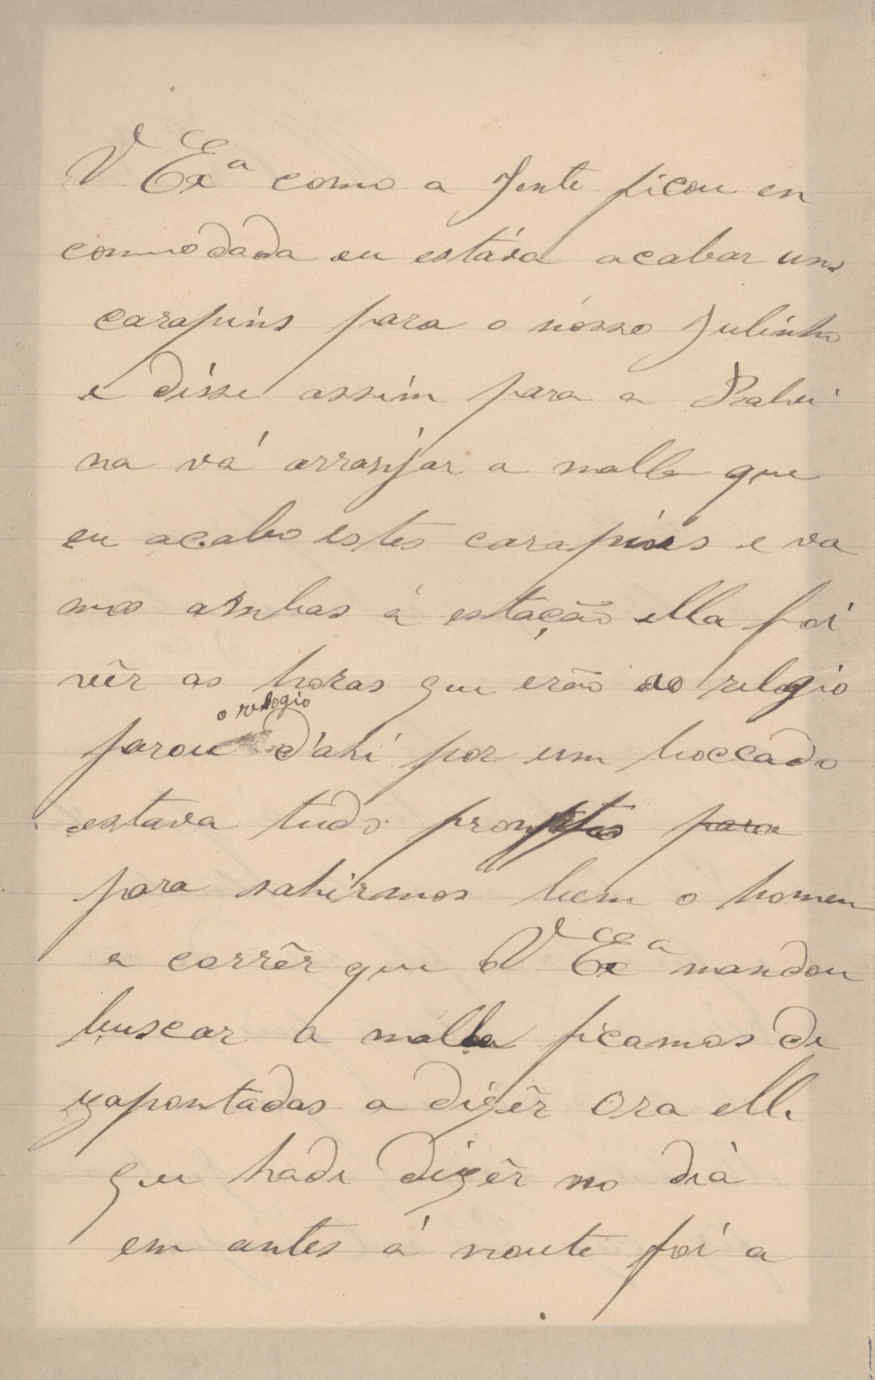 V Exª como a Jente ficou en
commodada eu estáva acabar uns
carapins para o nósso Julinho
e disse assim para a Balvi
na vá arranjar a malla que
eu acabo estes carapins e va
mos ambas á estação ella foi
vêr as horas que erão ao relogio
o relogio
parou d'ahi por um boccado
estava tudo promptos para
para sahirmos bem o homem
a corrêr que V Exª mandou
buscar a malla ficamos di
zapontadas a dizêr Ora elle
que hade dizêr no dia
em antes á noute foi a